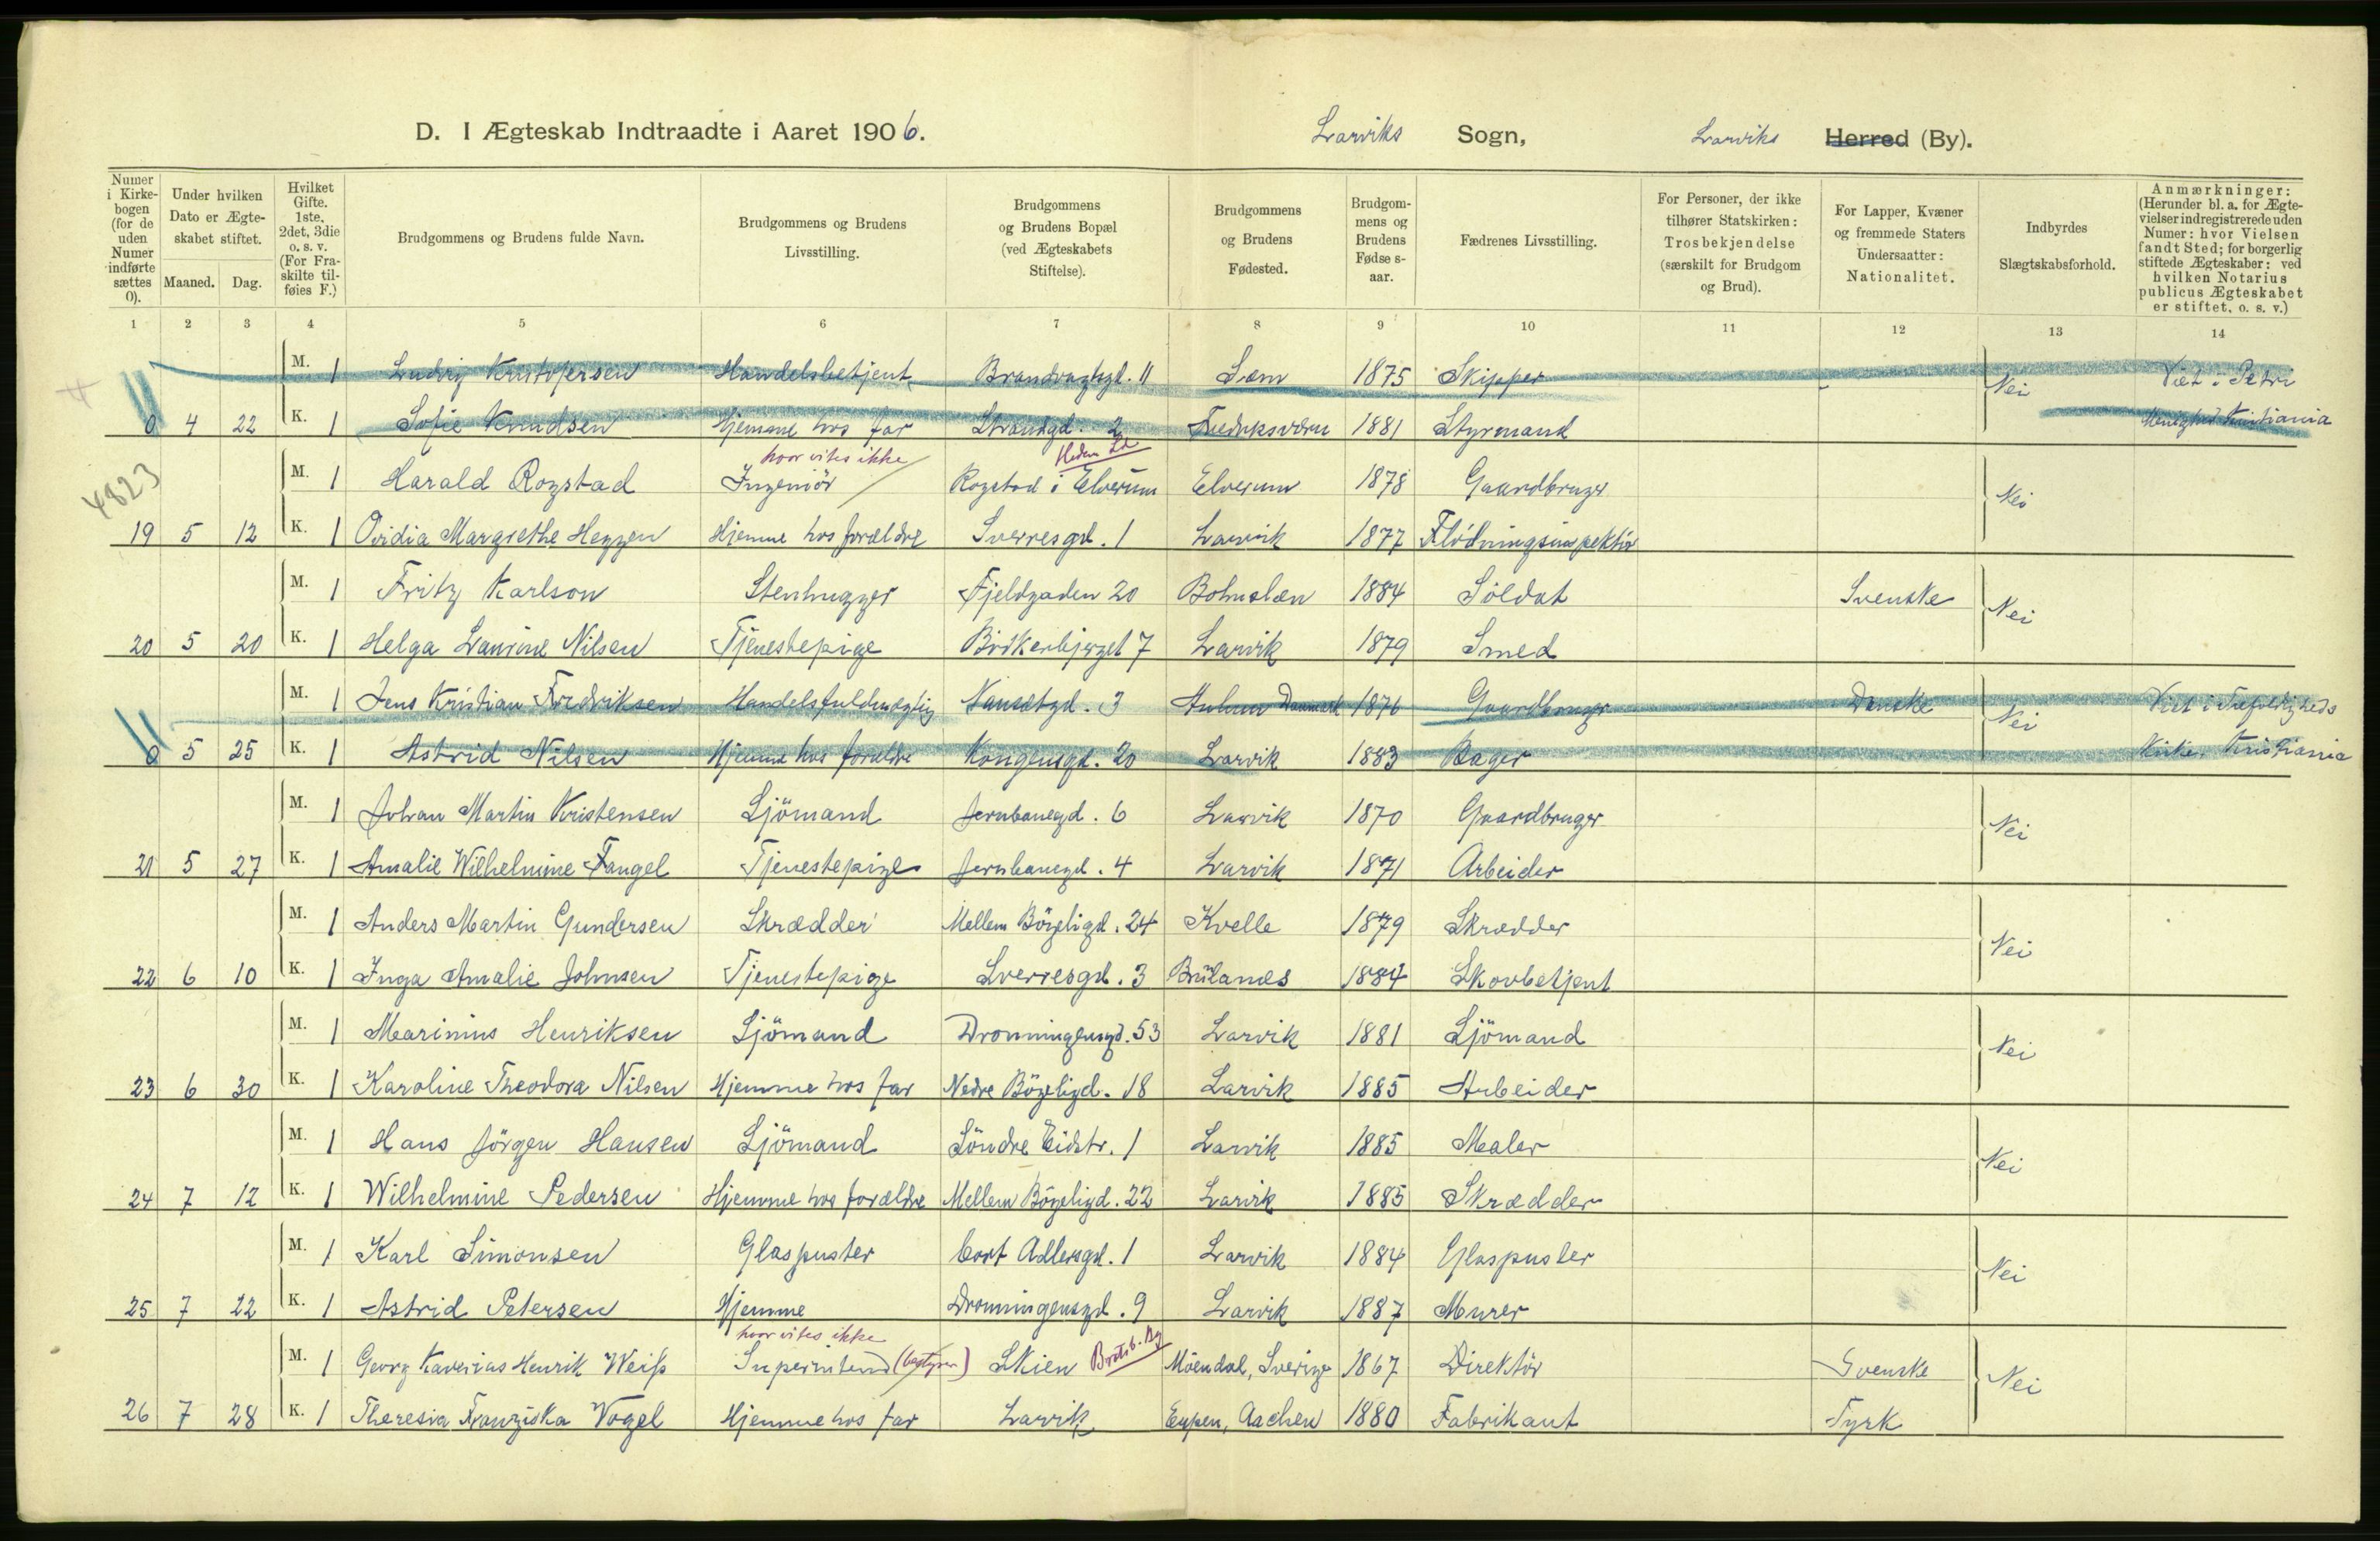 D. I Ægteskab Indtraadte i Aaret 1906. Larviks Sogn, Larviks Herred (By).
Numer i Kirkebogen (for de uden Numer indførte sættes 0). Under hvilken Dato er Ægteskabet stiftet. Maaned. Dag. Hvilket Gifte. 1ste, 2det, 3die o. s. v. (For Fraskilte tilføies F.) Brudgommens og Brudens fulde Navn. Brudgommens og Brudens Livsstilling. Brudgommens og Brudens Bopæl (ved Ægteskabets Stiftelse). Brudgommens og Brudens Fødested. Brudgommens og Brudens Fødselsaar. Fædrenes Livsstilling. For Personer, der ikke tilhører Statskirken: Trosbekjendelse (særskilt for Brudgom og Brud). For Lapper, Kvæner og fremmede Staters Undersaatter: Nationalitet. Indbyrdes Slægtskabsforhold. Anmærkninger: (Herunder bl. a. for Ægtevielser indregistrerede uden Numer: hvor Vielsen fandt Sted; for borgerlig stiftede Ægteskaber: ved hvilken Notarius publicus Ægteskabet er stiftet, o. s. v.)
1 2 3 4 5 6 7 8 9 10 11 12 13 14
M. 1 Ludvig Kristofersen Handelsbetjent Brandvagtgd. 11 Sem 1875 Skipper Nei Viet i Petri
4
0 4 22 K. 1 Sofie Knudsen Hjemme hos far Strandgd. 2 Fredriksværn 1881 Styrmand Menighed Kristiania
hvor vites ikke Hedm
4823
M. 1 Harald Rogstad Ingeniör Rogstad i Elverum Elverum 1878 Gaardbruger Nei
19 5 12 K. 1 Ovidia Margrethe Heyyen Hjemme hos forældre Sverresgd. 1 Larvik 1877 Flödningsinspektör
M. 1 Fritz Karlson Stenhugger Fjeldgaden 20 Bohuslen 1884 Soldat Svenske Nei
20 5 20 K. 1 Helga Laurine Nilsen Tjenestepige Bökerbjerget 7 Larvik 1879 Smed
M. 1 Jens Kristian Fredriksen Handelsfuldmægtig Nansetgd. 3 Danmark 1876 Gaardbruger Danske Nei Viet i Trefoldigheds
0 5 25 K. 1 Astrid Nilsen Hjemme hos forældre Kongensgd. 20 Larvik 1883 Bager Kirke Kristiania
M. 1 Johan Martin Kristensen Sjömand Jernbanegd. 6 Larvik 1870 Gaardbruger Nei
21 5 27 K. 1 Amalie Wilhelmine Fangel Tjenestepige Jernbanegd. 4 Larvik 1871 Arbeider
M. 1 Anders Martin Gundersen Skrædder Mellem Bögeligd. 24 Kvelle 1879 Skrædder Nei
22 6 10 K. 1 Inga Amalie Johnsen Tjenestepige Sverresgd. 3 Brulanes 1884 Skovbetjent
M. 1 Marinius Henriksen Sjömand Dronningensgd. 53 Larvik 1881 Sjömand Nei
23 6 30 K. 1 Karoline Theodora Nilsen Hjemme hos far Nedre Bögeligd. 18 Larvik 1885 Arbeider
M. 1 Hans Jörgen Hansen Sjömand Söndre Eidstr. 1 Larvik 1885 Maler Nei
24 7 12 K. 1 Wilhelmine Pedersen Hjemme hos forældre Mellem Bögeligd. 22 Larvik 1885 Skrædder
M. 1 Karl Simonsen Glaspuster Cort Adlersgd. 1 Larvik 1884 Glaspuster Nei
25 7 22 K. 1 Astrid Petersen Hjemme Dronningensgd. 9 Larvik 1887 Murer
hvor vites ikke
M. 1 Georg Kaverius Henrik Weiss Superintend (bestyrer) Skien Bratsb. By Möendal, Sverige 1867 Direktör Svenske Nei
26 7 28 K. 1 Theresia Franziska Vogel Hjemme hos far Larvik Eupen, Aachen 1880 Fabrikant Tysk